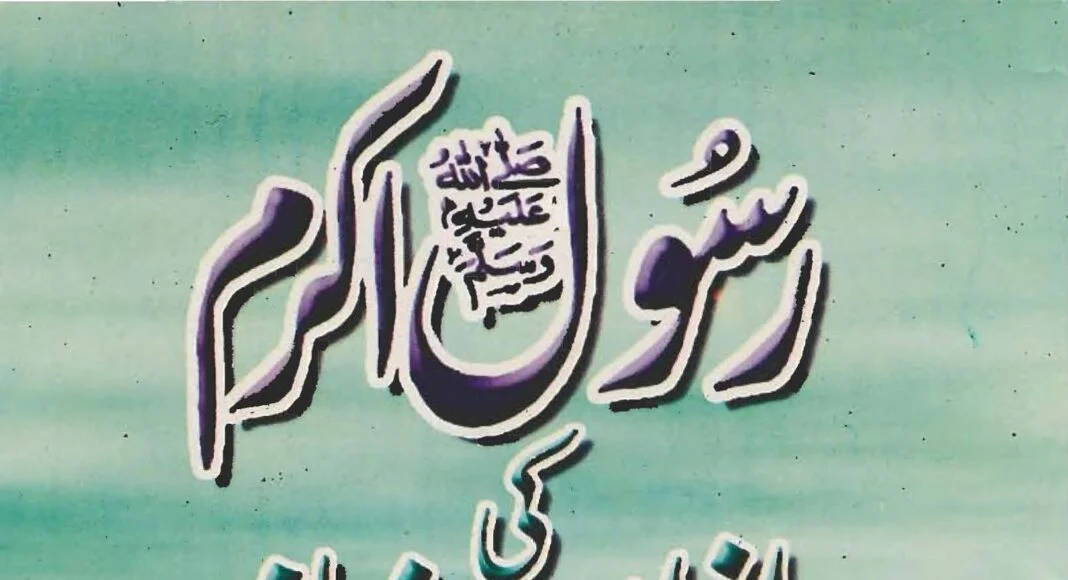 رسُول اکرم
صَلَّی اللہُ
عَلَیْہِ
وَسَلَّمَ
کی